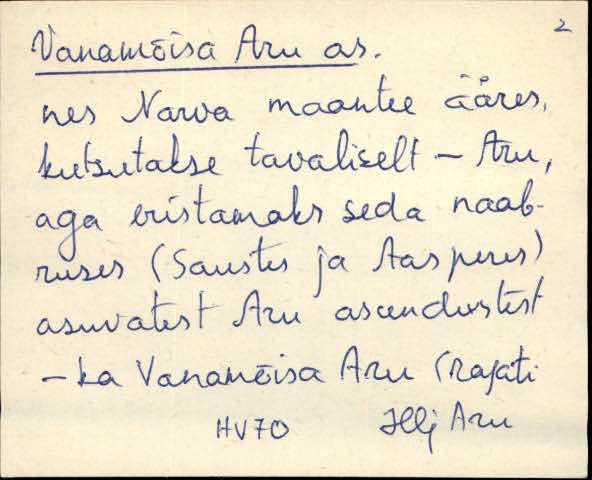 2
Vanamõisa Aru as.
nes Narva maantee ääres,
kutsutakse tavaliselt – Aru,
aga eristamaks seda naab-
ruses (Saustes ja Aasperes)
asuvatest Aru asundustest
– ka Vanamõisa Aru (rajati
HV70 Illj Aru